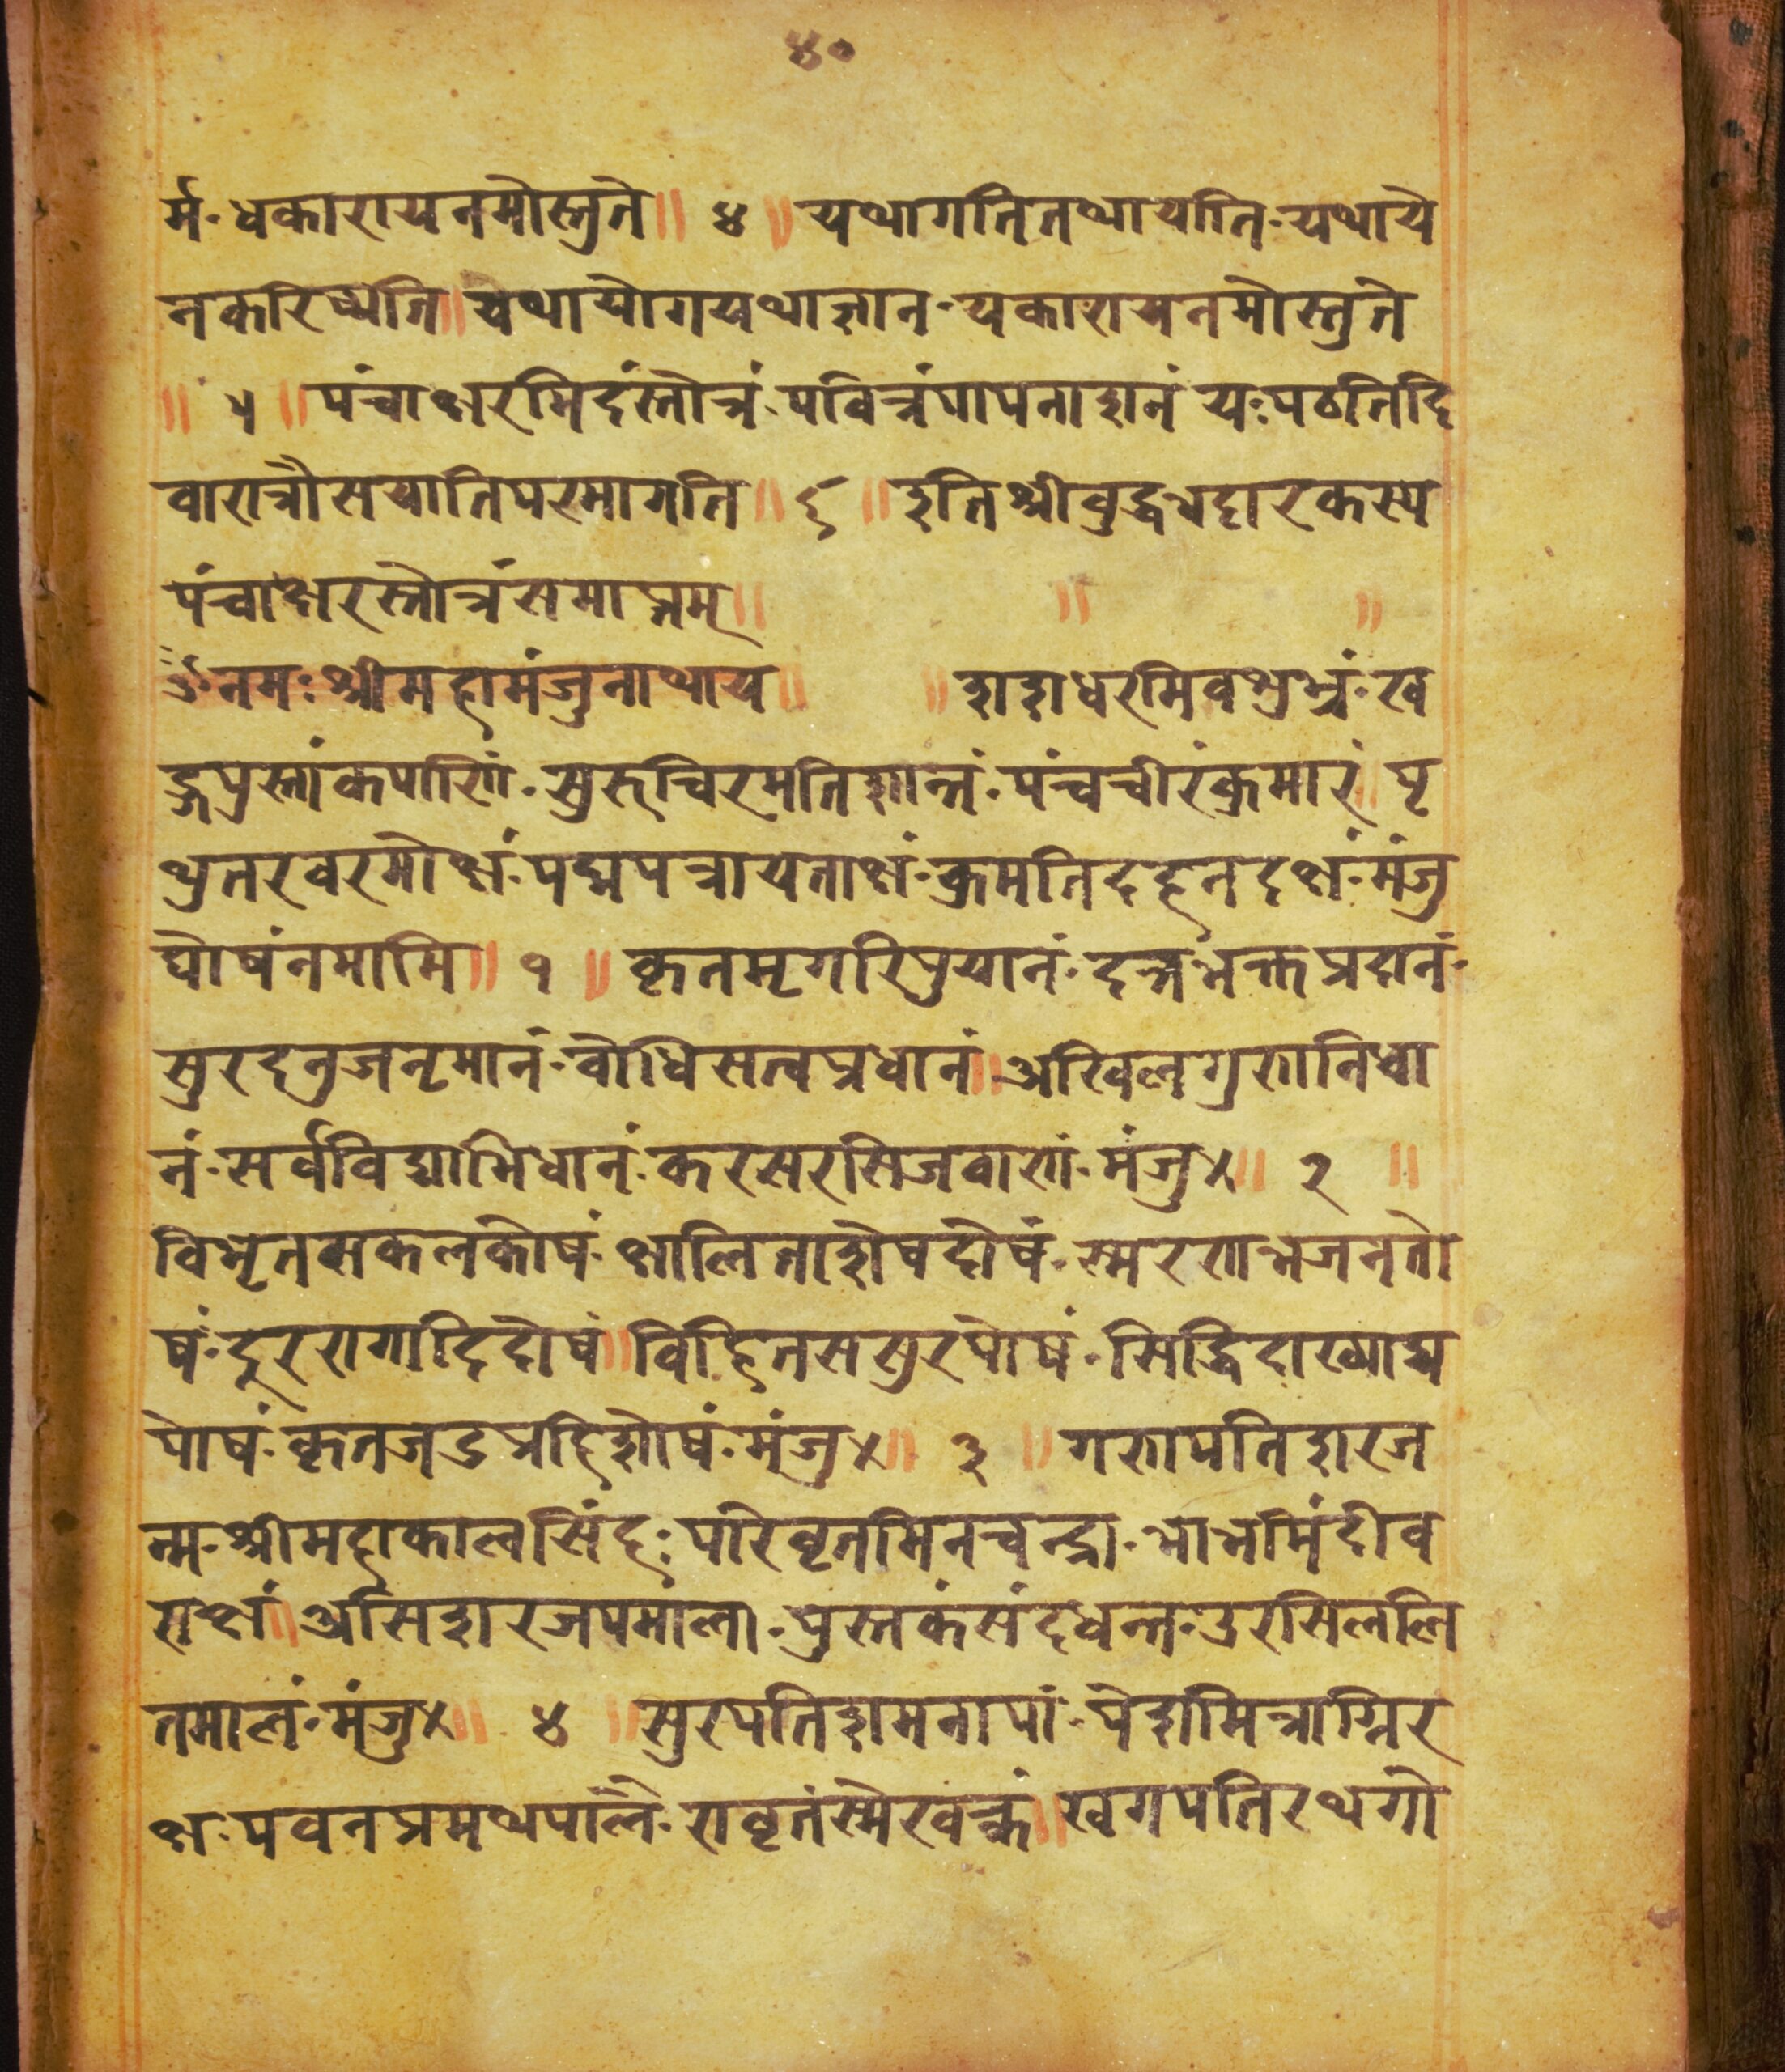 ४०
र्म·धकारायनमोस्तुते॥ ४ ॥ यथागतितथायाति·यथाये
नकरिष्यति॥यथायोगयथाज्ञान·यकारायनमोस्तुते
॥ ५ ॥ पंचाक्षरमिदंस्तोत्रं·पवित्रंपापनाशनं यःपठतिदि
वारात्रौसयातिपरमागति॥ ६ ॥ इतिश्रीबुद्धभट्टारकस्य
पंचाक्षरस्तोत्रंसमाप्तम्॥ ॥ ॥
ॐनमःश्रीमहामंजुनाथाय॥ ॥ शशधरमिवशुभ्रं·ख
ड्गपुस्तांकपाणिं·सुरुचिरमतिशान्तं·पंचचीरंकुमारं॥पृ
थुतरवरमोक्षं·पद्मपत्रायताक्षं·कुमतिदहनदक्षं·मंजु
घोषंनमामि॥ १ ॥ कृतमृगरिपुयानं·दत्तभक्तप्रदानं·
सुरदनुजनृमानं·वोधिसत्वप्रधानं॥अखिलगुणनिधा
नं·सर्वविद्याभिधानं·करसरसिजवाणं·मंजु४॥ २ ॥
विभृतसकलकोषं·क्षालिताशेषदोषं·स्मरणात्मजनतो
षं·दुररागादिदोषं॥विहितससुरपोषं·सिद्धिदाख्याद्य
घोषं·कृतजडप्रहिशोषं·मंजु४॥ ३ ॥ गणपतिशरज
न्म·श्रीमहाकालसिंहःपरिवृतमिनचन्द्रा·भाभमिंदीव
राक्षं॥असिशरजपमाला·पुस्तकंसंदधन्त·उरसिललि
तमालं·मंजु४॥ ४ ॥ सुरपतिशमनापां·पेशमित्राग्निर
क्ष·पवनप्रमथपालै·रावृतंस्मेरवक्त्रं॥खगपतिरथगो